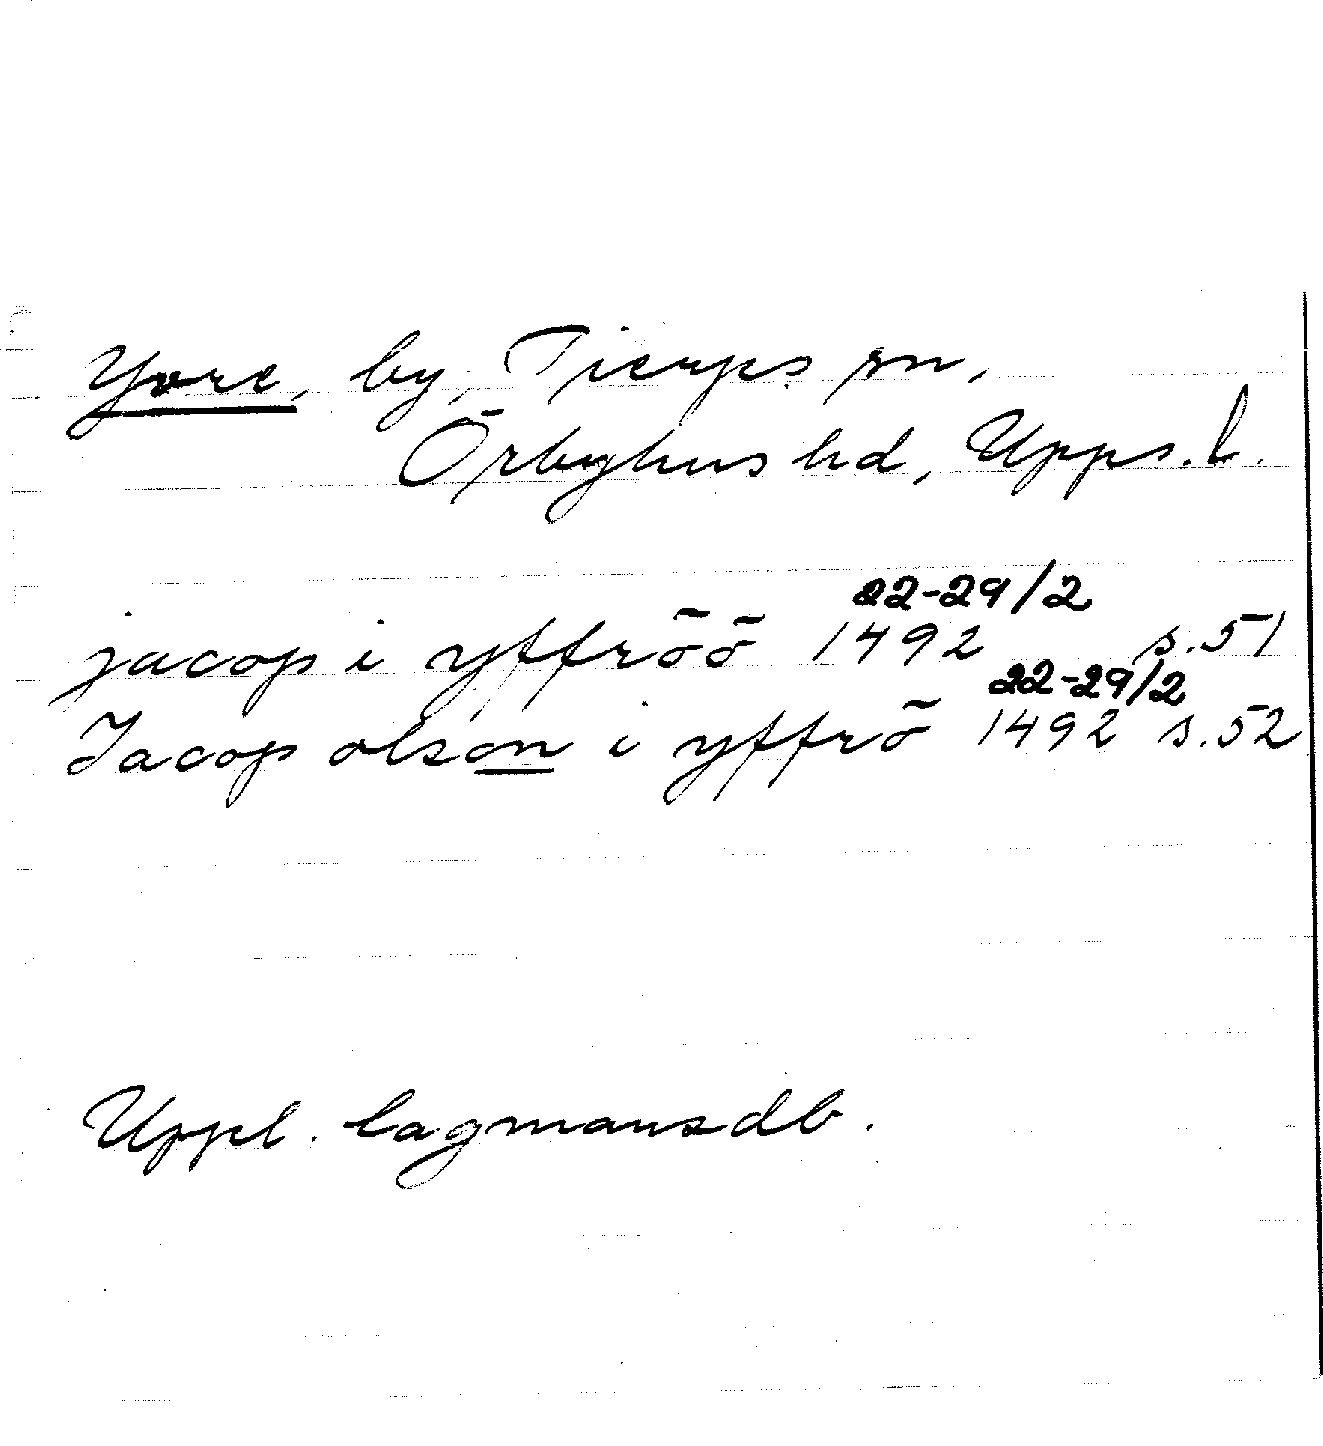 Yvre, by, Tierps sn,
Örbyhus hd, Upps. l.
22-29/2
jacop i yffröö 1492 s. 51
22-29/2
Jacop olson i yffrö 1492 s. 52
Uppl. lagmansdb.